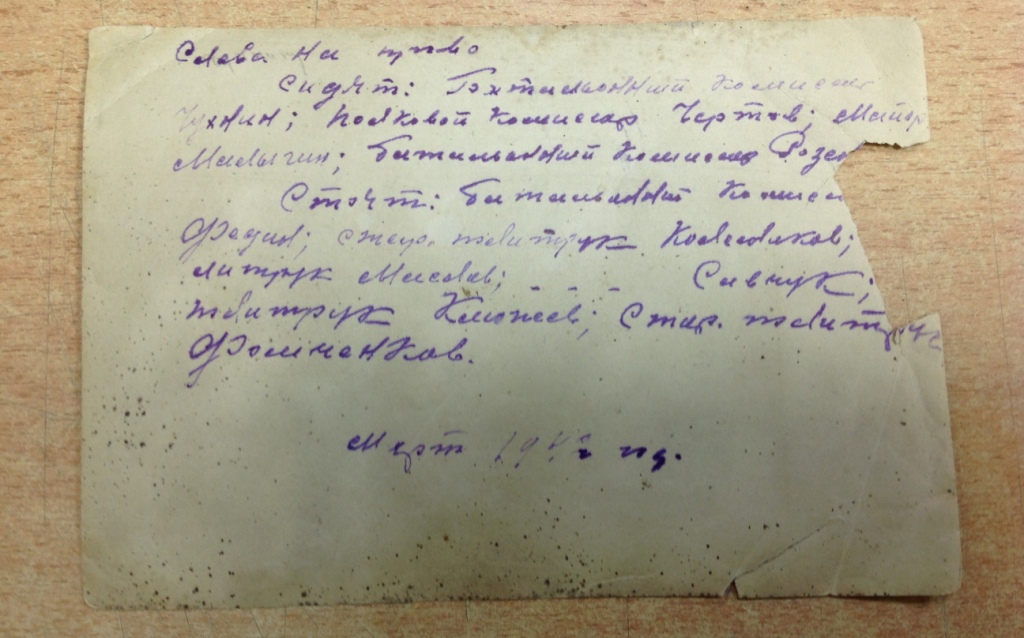 Слева на право
Сидят: Батальонный комиссар
Чухнин; Полковой комиссар Чертов; Майор
Малыгин; батальонный комиссар Розен
Стоят: батальонный комисса
Федин; стар. политрук Колесников;
литрук Маслов; - - - - Савчук;
политрук Клюжев; Стар. политрук
Фомченков.
Март 1942 год.